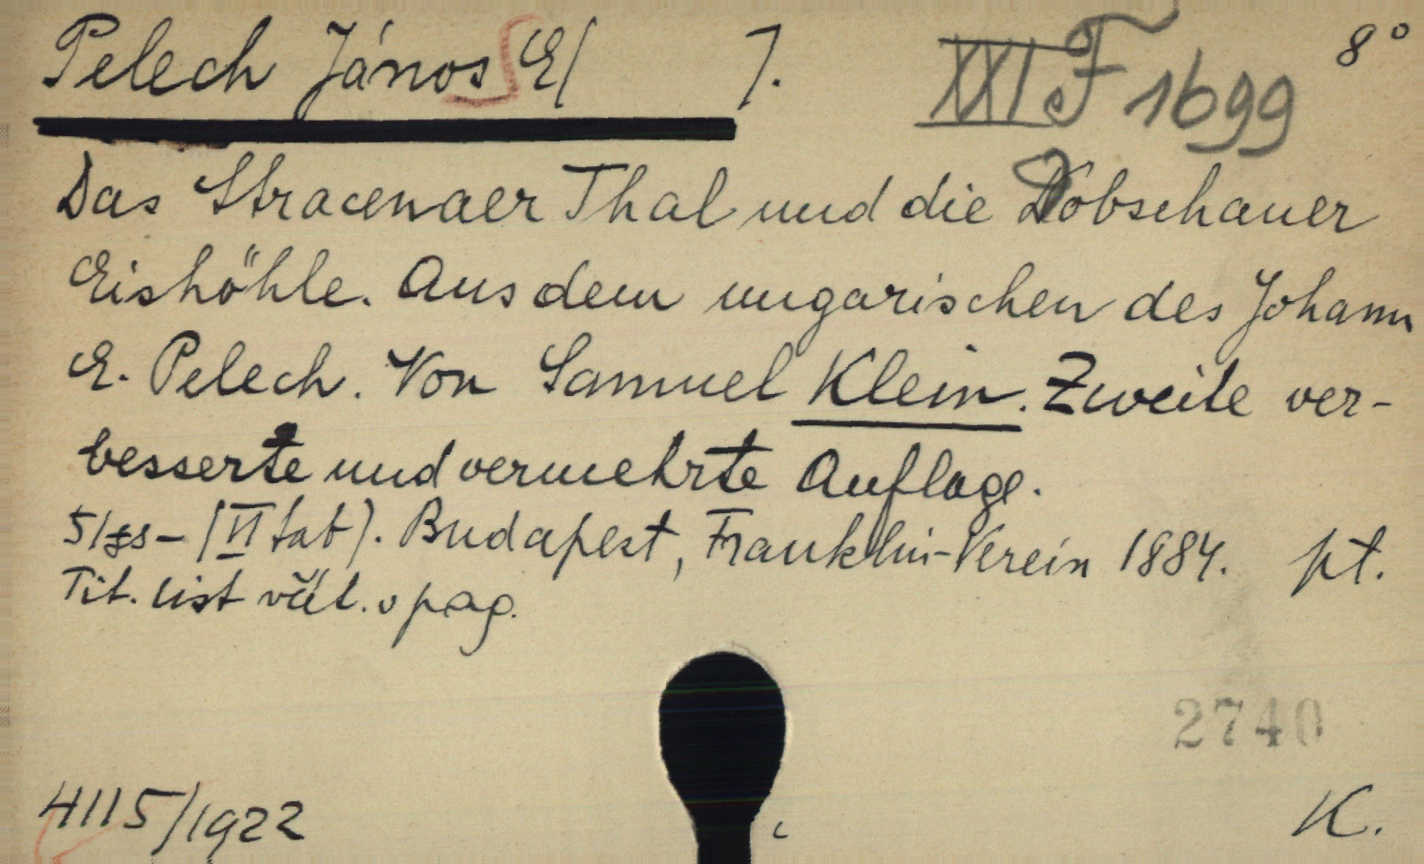 Pelech János E/ ). XXI F 1699 8°
Das Stracenaer Thal und die Dobschauer
Eishöhle. Aus dem ungarischen des Johann
E. Pelech. Von Samuel Klein. Zweite ver-
besserte und vermehrte Auflage.
(VI tab). Budapest, Franklin-Verein 1884. pt.
Tit. list pag.
2740
4115/1922 K.